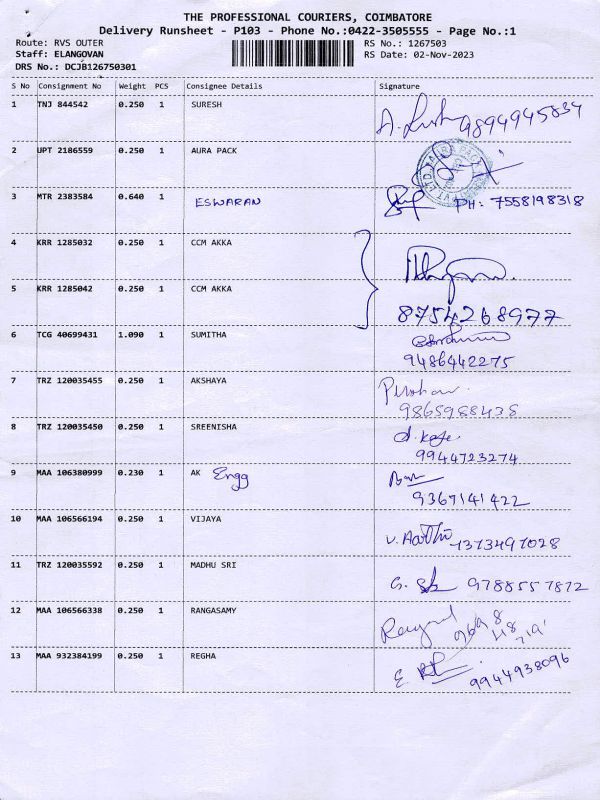 THE PROFESSIONAL COURIERS, COIMBATORE
Delivery Runsheet - P103 - Phone No.:0422-3505555 - Page No.:1
Route: RVS OUTER RS No.: 1267503
Staff: ELANGOVAN RS Date: 02-Nov-2023
DRS No.: DCJB126750301
S No Consignment No Weight PCS Consignee Details Signature
1 TNJ 844542 0.250 1 SURESH 9894945834
2 UPT 2186559 0.250 1 AURA PACK
3 MTR 2383584 0.640 1 ESWARAN PH: 7558198318
4 KRR 1285032 0.250 1 CCM AKKA
5 KRR 1285042 0.250 1 CCM AKKA 8754268977
6 TCG 40699431 1.090 1 SUMITHA
9486442275
7 TRZ 120035455 0.250 1 AKSHAYA
9865988435
8 TRZ 120035450 0.250 1 SREENISHA
9944723274
9 MAA 106380999 0.230 1 AK Engg
9367141422
10 MAA 106566194 0.250 1 VIJAYA
V. Aarthi 7373497028
11 TRZ 120035592 0.250 1 MADHU SRI
9788557872
12 MAA 106566338 0.250 1 RANGASAMY
13 MAA 932384199 0.250 1 REGHA
9944938096